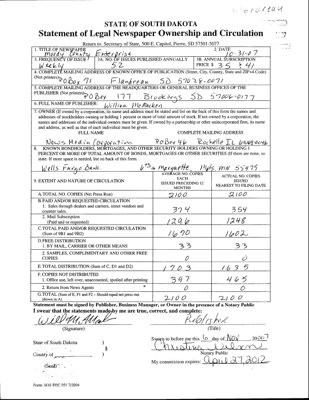 STATE OF SOUTH DAKOTA
Statement of Legal Newspaper Ownership and Circulation
Return to: Secretary of State, 500 E. Capitol, Pierre, SD 57501-5077
1. TITLE OF NEWSPAPER
Moody County Enterprise
2. DATE
10-31-07
3. FREQUENCY OF ISSUE
Weekly
3A. NO. OF ISSUES PUBLISHED ANNUALLY
52
3B. ANNUAL SUBSCRIPTION
PRICE $ 35 / 41
4. COMPLETE MAILING ADDRESS OF KNOWN OFFICE OF PUBLICATION (Street, City, County, State and ZIP+4 Code)
(Not printers)
PO Box 71 Flandreau SD 57028
5. COMPLETE MAILING ADDRESS OF THE HEADQUARTERS OR GENERAL BUSINESS OFFICES OF THE
PUBLISHER (Not printer)
PO Box 177 Brookings SD 57006-0177
6. FULL NAME OF PUBLISHER
William McMacken
7. OWNER (If owned by a corporation, its name and address must be stated and listed on the back of this form the names and
addresses of stockholders owning or holding 1 percent or more of total amount of stock. If not owned by a corporation, the
names and addresses of the individual owners must be given. If owned by a partnership or other unincorporated firm, its name
and address, as well as that of each individual must be given.
FULL NAME
COMPLETE MAILING ADDRESS
News Media Corporation PO Box 46 Rochelle IL
8. KNOWN BONDHOLDERS, MORTGAGES, AND OTHER SECURITY HOLDERS OWNING OR HOLDING 1
PERCENT OR MORE OF TOTAL AMOUNT OF BONDS, MORTGAGES OR OTHER SECURITIES (If there are none, so
state. If more space is needed, list on back of this form.
Wells Fargo Bank 6th & Marquette Mpls. MN 55479
9. EXTENT AND NATURE OF CIRCULATION
AVERAGE NO. COPIES
EACH
ISSUED PRECEDING 12
MONTHS
ACTUAL NO. COPIES
ISSUED
NEAREST TO FILING DATE
A. TOTAL NO. COPIES (Net Press Run)
2100
2100
B. PAID AND/OR REQUESTED CIRCULATION
1. Sales through dealers and carriers, street vendors and
counter sales.
374
354
2. Mail Subscription
(Paid and or requested)
1296
1248
C. TOTAL PAID AND/OR REQUESTED CIRCULATION
(Sum of 9B1 and 9B2)
1670
1602
D. FREE DISTRIBUTION
1. BY MAIL, CARRIER OR OTHER MEANS
33
33
2. SAMPLES, COMPLIMENTARY AND OTHER FREE
COPIES
0
0
E. TOTAL DISTRIBUTION (Sum of C, D1 and D2)
1703
1635
F. COPIES NOT DISTRIBUTED
1. Office use, left over, unaccounted, spoiled after printing
397
465
2. Return from News Agents
0
0
G. TOTAL (Sum of E, F1 and F2 - Should equal net press run
shown in A)
2100
2100
Statement must be signed by Publisher, Business Manager, or Owner in the presence of a Notary Public
I swear that the statements made by me are true, correct, and complete:
Publisher
(Signature)
(Title)
State of South Dakota )
County of )
(Seal)
Sworn to before me this 6 day of Nov 2007
Notary Public
My commission expires: April 27, 2012